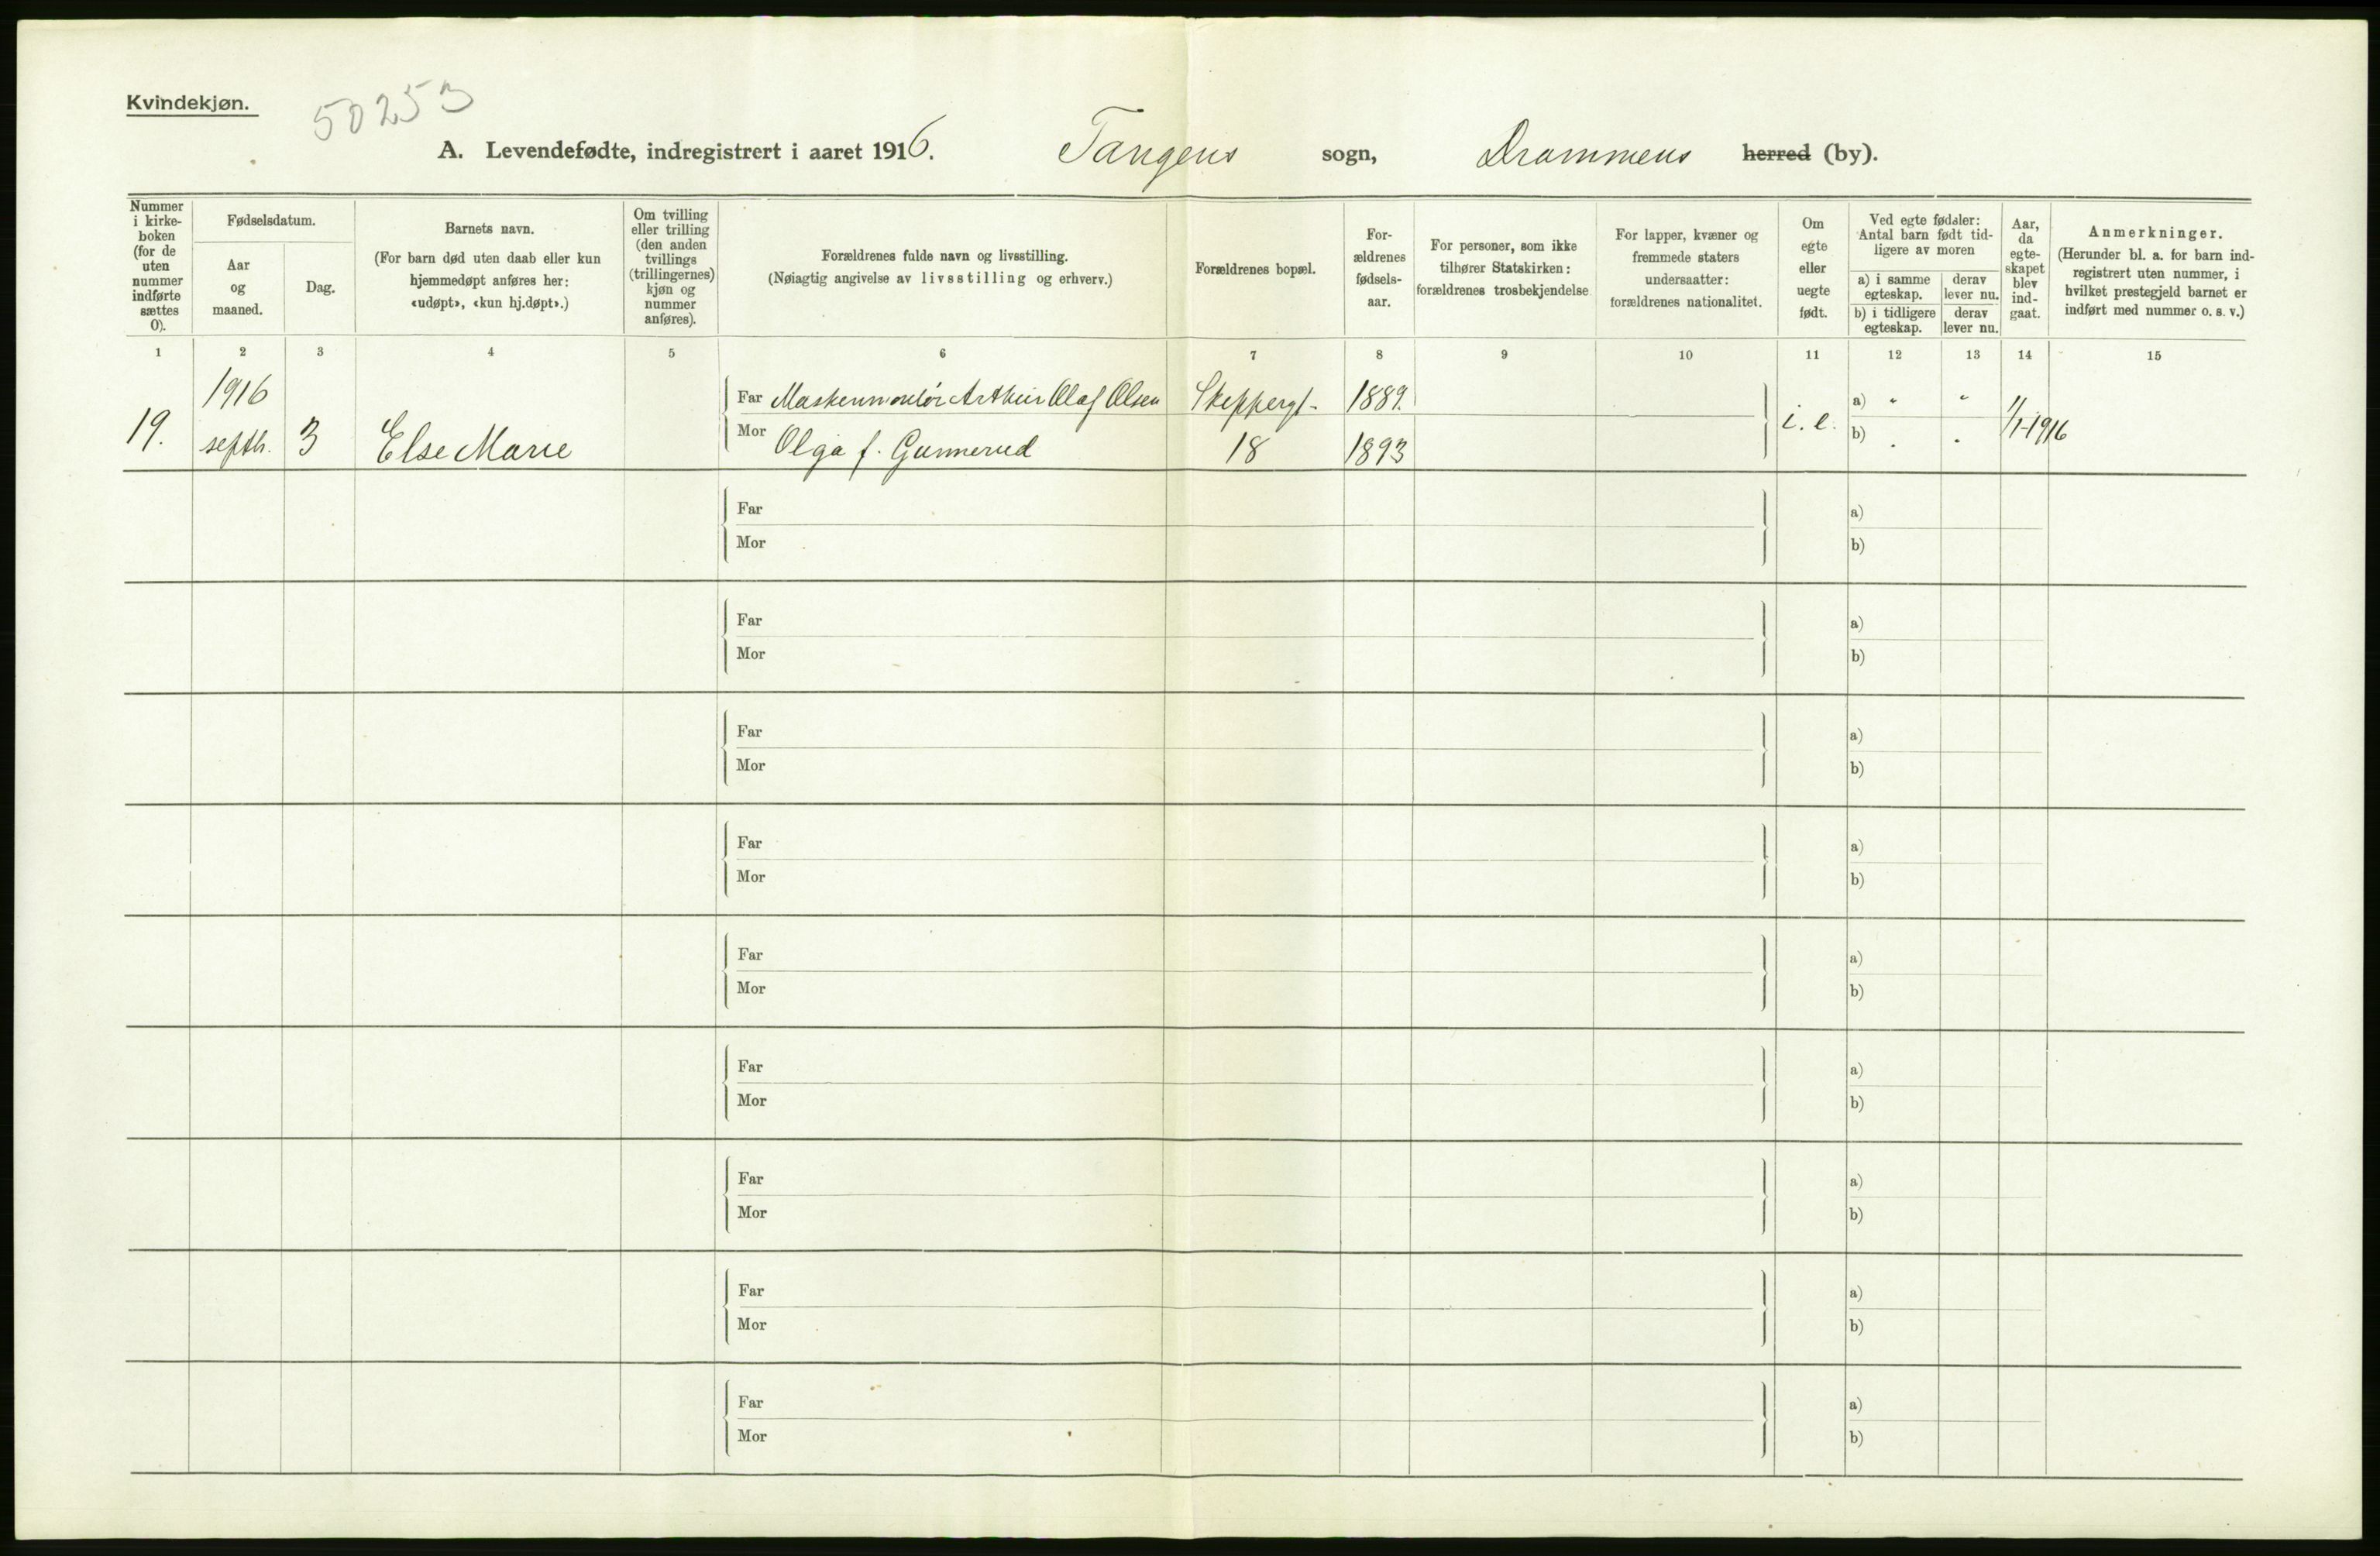 Kvindekjøn.
50253
A. Levendefødte, indregistrert i aaret 1916. Tangens sogn, Drammens herred (by).
Nummer i kirke-boken (for de uten nummer indførte sættes 0).
Fødselsdatum.
Aar og maaned.
Dag.
Barnets navn.
(For barn død uten daab eller kun hjemmedøpt anføres her: «udøpt», «kun hj.døpt».)
Om tvilling eller trilling (den anden tvillings (trillingernes) kjøn og nummer anføres).
Forældrenes fulde navn og livsstilling.
(Nøiagtig angivelse av livsstilling og erhverv.)
Forældrenes bopæl.
For-ældrenes fødsels-aar.
For personer, som ikke tilhører Statskirken: forældrenes trosbekjendelse.
For lapper, kvæner og fremmede staters undersaatter: forældrenes nationalitet.
Om egte eller uegte født.
Ved egte fødsler: Antal barn født tid-ligere av moren
a) i samme egteskap.
derav lever nu.
b) i tidligere egteskap.
derav lever nu.
Aar, da egte-skapet blev ind-gaat.
Anmerkninger.
(Herunder bl. a. for barn ind-registrert uten nummer, i hvilket prestegjeld barnet er indført med nummer o. s. v.)
1 2 3 4 5 6 7 8 9 10 11 12 13 14 15
1916 Far Maskenmontör Arthur Olaf Olsen Skeppergt- 1889. a) " "
19. septbr. 3 Else Marie Mor Olga f. Gunnerud 18 1893 i. e. b) " " 1/1-1916
Far a)
Mor b)
Far a)
Mor b)
Far a)
Mor b)
Far a)
Mor b)
Far a)
Mor b)
Far a)
Mor b)
Far a)
Mor b)
Far a)
Mor b)
Far a)
Mor b)